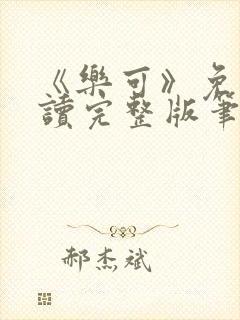 《樂可》免
讀完整版筆
郝杰斌